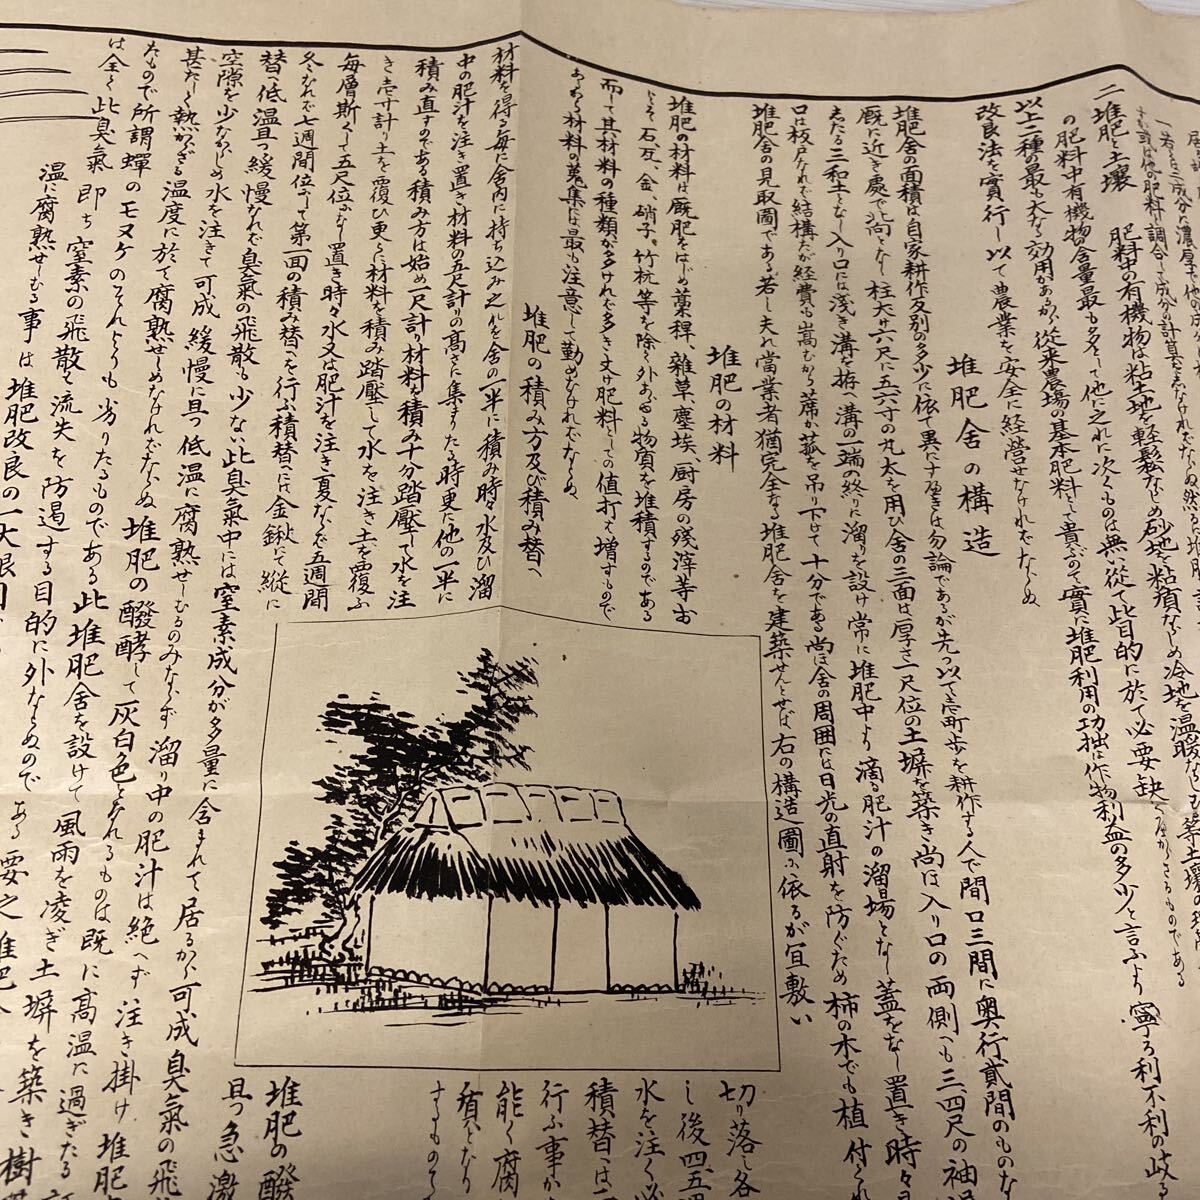 二 堆肥と土壌 肥料中の有機物は粘土地を軽鬆ならしめ砂地を粘碩ならしめ冷地を温暖ならしむ等土壌の
の肥料中有機物の含量最も多くして他に之れに次くものは無い従て此目的に於て必要缺くべからさるものである
以上二種の最も大なる効用があるから従来農場の基本肥料として貴ぶので實に堆肥利用の功拙は作物利益の多少と言ふより寧ろ利不利の岐る
改良法を實行し以て農業を安全に経営せなければならぬ
堆肥舎の構造
堆肥舎の面積は自家耕作反別の多少に依て異になるべきは勿論であるが先つ以て壱町歩を耕作する人で間口三間に奥行貳間のものな
厩に近き處で北向となし柱大サ六尺に五六寸の丸太を用ひ舎の三面は厚さ一尺位の土塀を築き尚ほ入り口の両側へも三四尺の袖
したる三和土となし入り口には浅き溝を拵へ溝の一端の終りに溜りを設け常に堆肥中より滴る肥汁の溜場となし蓋をなし置き時々
口は板戸なれば結構だが経費も嵩むから蓆か菰を吊り下けて十分である尚ほ舎の周囲には日光の直射を防ぐため柿の木でも植付く
堆肥舎の見取圖である若し夫れ當業者猶完全なる堆肥舎を建築せんとせば右の構造圖に依るが宜敷い
堆肥の材料
堆肥の材料は厩肥をはじめ藁稈、雑草、塵埃、厨房の残滓等お
にそ石、瓦、金、硝子、竹杭等を除く外あらゆる物質を堆積するのである
而して其材料の種類が多ければ多き丈け肥料としての値打も増すもので
あるから材料の蒐集には最も注意して勤めなければならぬ
堆肥の積み方及び積み替へ
材料を得る毎に舎内に持ち込み之れを舎の一半に積み時々水及ひ溜
中の肥汁を注き置き材料の五尺計りの高さに集まりたる時更に他の一半に
積み直すのである積み方は始め一尺計り材料を積み十分踏壓して水を注
き壱寸計り土を覆ひ更に材料を積み踏壓して水を注き土を覆ふ
毎層斯くして五尺位になし置き時々水又は肥汁を注き夏ならば五週間
冬なれば七週間位にて第一回の積み替へを行ふ積替には金鍬にて縦に
切り落し各
し後四五
水を注く必
積替へは一
行ふ事か
能く腐
積となり
するものて
替へ低温且つ緩慢なれば臭氣の飛散も少ない此臭氣中には窒素成分が多量に含まれて居るから可成臭氣の飛
空隙を少なからしめ水を注きて可成緩慢に且つ低温に腐熟せしむるのみならず溜り中の肥汁は絶へず注き掛け堆肥
甚だしく熱からざる温度に於て腐熟せしめなければならぬ堆肥の醱酵して灰白色となれるものは既に高温に過ぎたる
たもので所謂蟬のモヌケのそれよりも劣りたるものである此堆肥舎を設けて風雨を凌ぎ土塀を築き樹
は全く此臭氣即ち窒素の飛散と流失を防遏する目的に外ならぬのである要之堆肥
温に腐熟せしむる事は堆肥改良の一大眼目
堆肥の醱
且つ急激